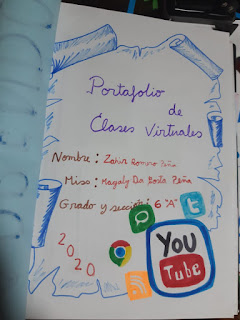 Portafolio
de
Clases Virtuales
Nombre: Zahir Romero Peña
Miss: Magaly Da Costa Peña
Grado y sección: 6 "A"
2020
You
Tube